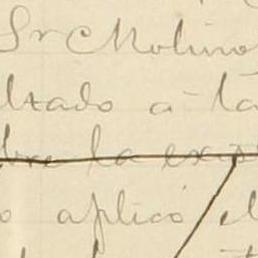 Sr Molino
ltado a ta
bre la exis
o aplicó el